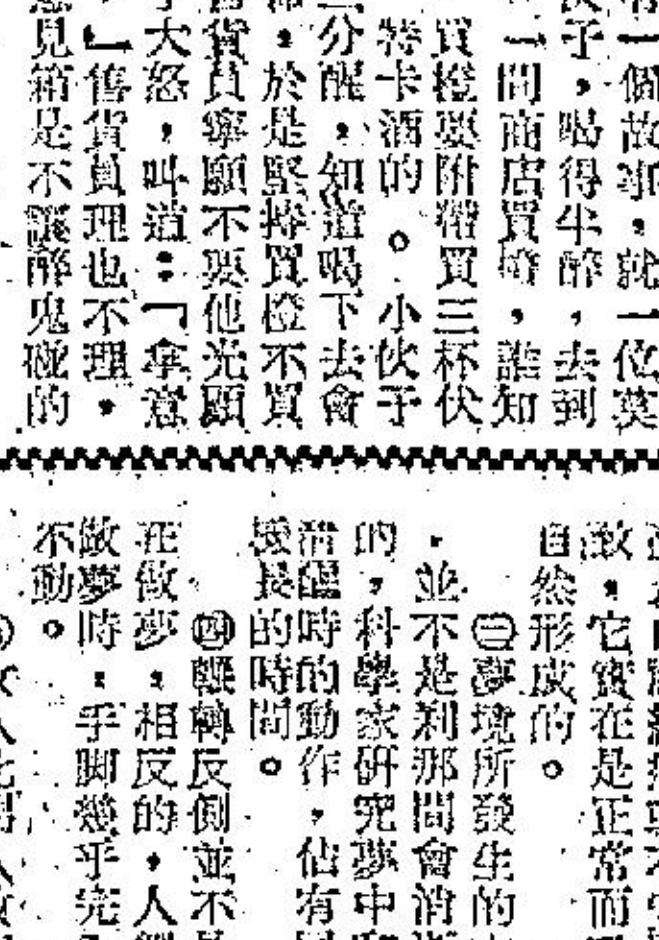 一個故事，就一位英
子，喝得半醉，去到
一間商店買橙，誰知
買橙要附帶買三杯伏
特卡酒的。小伙子
分醒，知道喝下去會
，於是堅持買橙不買
貨員寧願不要他光顧
大怒，叫道：「拿意
」售貨員理也不理，
見箱是不讓醉鬼碰的
致，它實在是正常而
自然形成的。
㊂夢境所發生的
，並不是刹那間會消
的，科學家研究夢中
清醒時的動作，佔有
長的時間。
㊃輾轉反側並不
在做夢，相反的，人
做夢時，手脚幾乎完
不動。